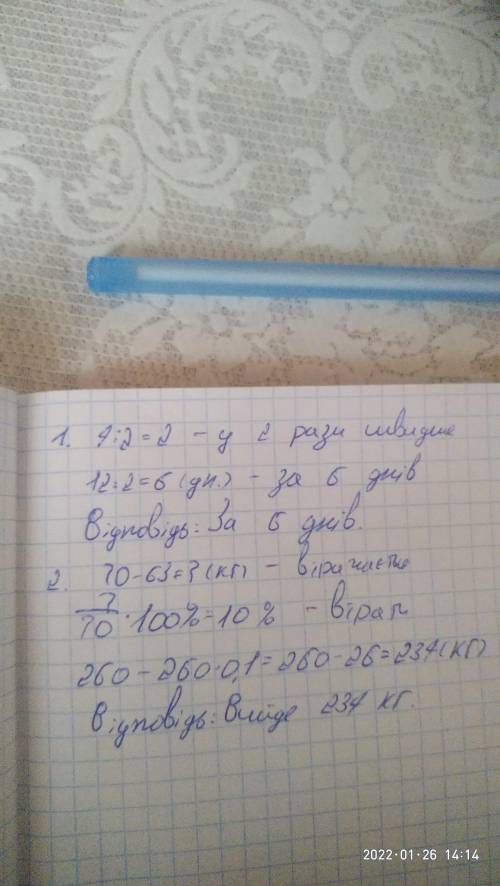 1. 4:2=2 - у 2 рази швидше
12:2=6 (дн.) - за 6 днів
Відповідь: За 6 днів.
2. 70-63=7 (кг) -
7/70 · 100%=10% -
260-260·0,1=260-26=234(кг)
Відповідь: Вийде 234 кг.
2022·01·26 14:14